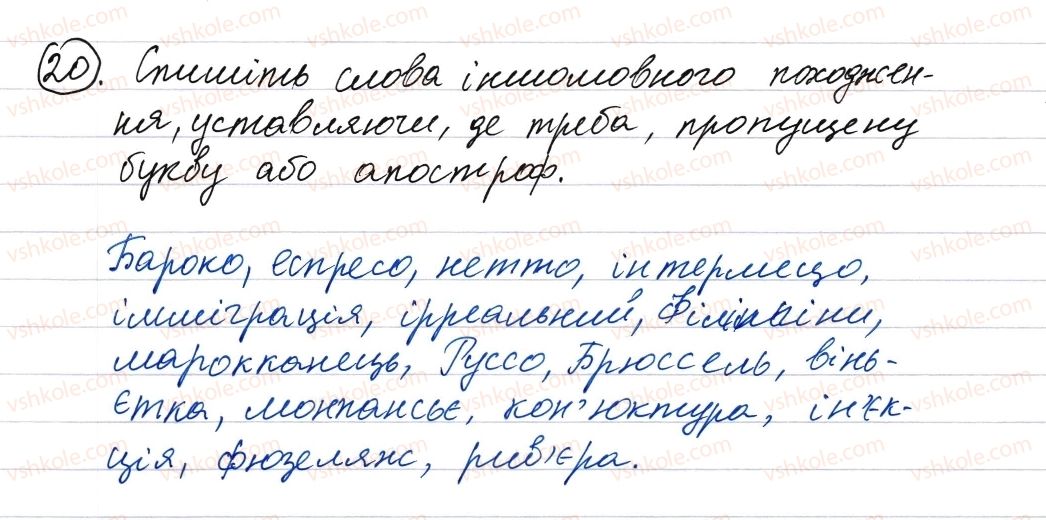 20. Спишіть слова іншомовного походжен-
ня, уставляючи, де треба, пропущену
букву або апостроф.
Бароко, еспресо, нетто, інтермецо,
імміграція, ірреальний, Філіппіни,
марокканець, Руссо, Брюссель, вінь-
єтка, монпансьє, кон'юктура, ін'єк-
ція, фюзеляж, рив'єра.